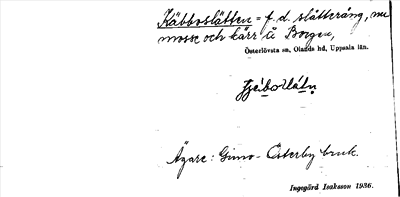 Käbboslätten = f. d. slåtteräng, nu
mosse och kärr å Borgen,
Österlövsta sn, Olands hd, Uppsala län.
Ägare: Gimo-Österby bruk.
Ingegärd Isaksson 1936.